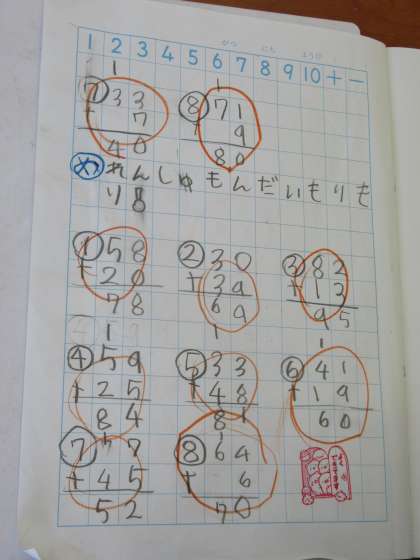 がつ にち ようび
1 2 3 4 5 6 7 8 9 10 + −
1 1
⑦ 33 ⑧ 71
+ 7 + 9
40 80
め れんしゅ もんだいもりも
り8
① 58 ② 30 ③ 82
+20 +39 +13
78 69 95
1 1 1
④ 59 ⑤ 33 ⑥ 41
+25 +48 +19
84 81 60
1
⑦ 7 ⑧ 64
+45 + 6
52 70